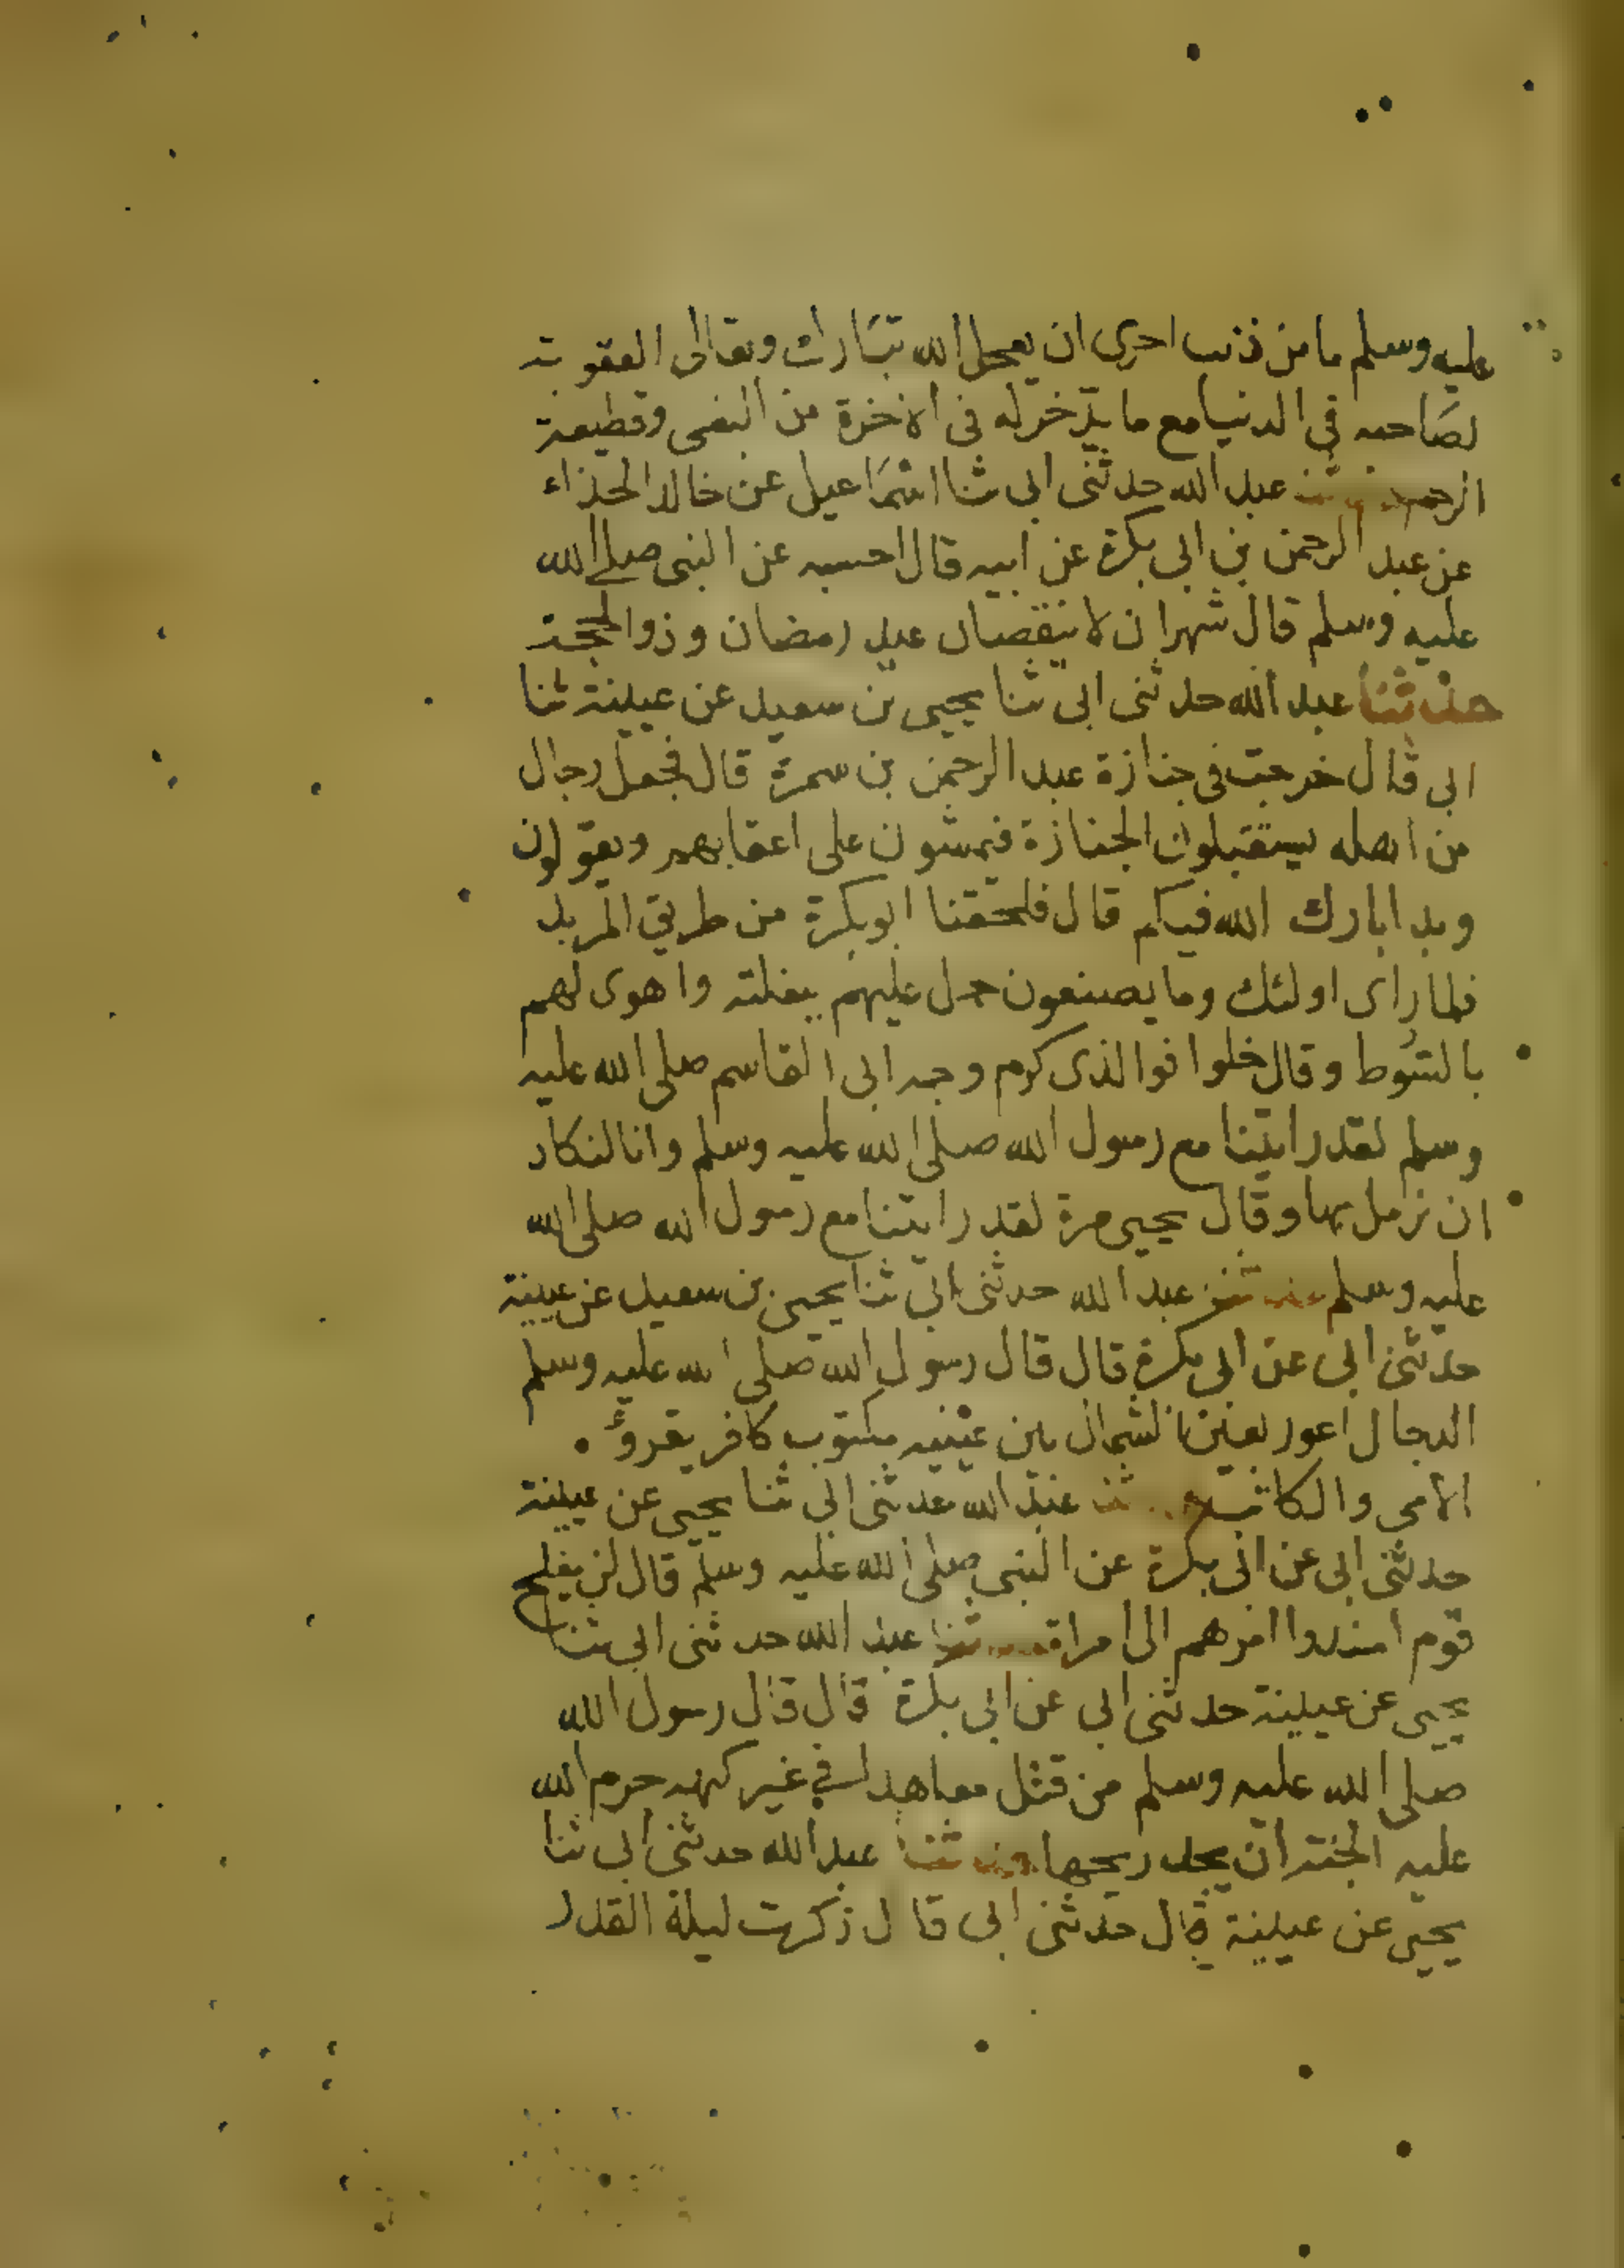 عليه وسلم ما من ذنب احرى ان يعجل الله تبارك وتعالى العقوبة
لصاحبه في الدنيا مع ما يدخر له فى الاخرة من البغى وقطيعة
الرحم حدثنا عبد الله حدثنى ابى ثنا اسماعيل عن خالد الحذاء
عن عبد الرحمن بن ابى بكرة عن ابيه قال احسبه عن النبى صلى الله
عليه وسلم قال شهران لا ينقصان عيد رمضان وذو الحجة
حدثنا عبد الله حدثنى ابى ثنا يحيى بن سعيد عن عيينة ثنا
ابى قال خرجت فى جنازة عبد الرحمن بن سمرة قال فجعل رجال
من اهله يستقبلون الجنازة فيمشون على اعقابهم ويقولون
رويدا بارك الله فيكم قال فلحقنا ابو بكرة من طريق المربد
فلما راى اولئك وما يصنعون حمل عليهم ببغلته واهوى لهم
بالسوط وقال خلوا فوالذى كرم وجه ابى القاسم صلى الله عليه
وسلم لقد رايتنا مع رسول الله صلى الله عليه وسلم وانا لنكاد
ان نرمل بها وقال يحيى مرة لقد رايتنا مع رسول الله صلى الله
عليه وسلم حدثنا عبد الله حدثنى ابى ثنا يحيى بن سعيد عن عيينة
حدثنى ابى عن ابى بكرة قال قال رسول الله صلى الله عليه وسلم
الدجال اعور بعين الشمال بين عينيه مكتوب كافر يقروٴ
الامى والكاتب حدثنا عبد الله حدثنى ابى ثنا يحيى عن عيينة
حدثنى ابى عن ابى بكرة عن النبى صلى الله عليه وسلم قال لن يفلح
قوم اسندوا امرهم الى امراة حدثنا عبد الله حدثنى ابى ثنا
يحيى عن عيينة حدثنى ابى عن ابى بكرة قال قال رسول الله
صلى الله عليه وسلم من قتل معاهدا في غير كنهه حرم الله
عليه الجنة ان يجد ريحها حدثنا عبد الله حدثنى ابى ثنا
يحيى عن عيينة قال حدثنى ابى قال ذكرت ليلة القدر